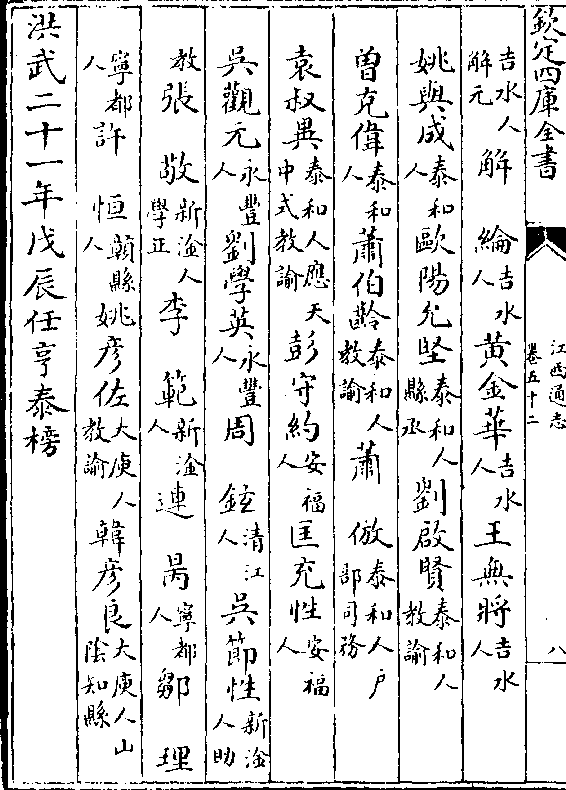 欽定四庫全書
江西通志
卷五十二
八
吉水人解元 解綸吉水人 黃金華吉水人 王無將吉水人
姚與成泰和人 歐陽允堅泰和人縣丞 劉啟賢泰和人教諭
曾克偉泰和人 蕭伯齡泰和人教諭 蕭倣泰和人戶部司務
袁叔異泰和人應天中式教諭 彭守約安福人 匡充性安福人
吳觀元永豐人 劉學英永豐人 周鉉清江人 吳節性新淦人助
教 張敬新淦人學正 李範新淦人 連昺寧都人 鄒理
寧都人 許恒贛縣人 姚彦佐大庾人教諭 韓彦良大庾人山陰知縣
洪武二十一年戊辰任亨泰榜